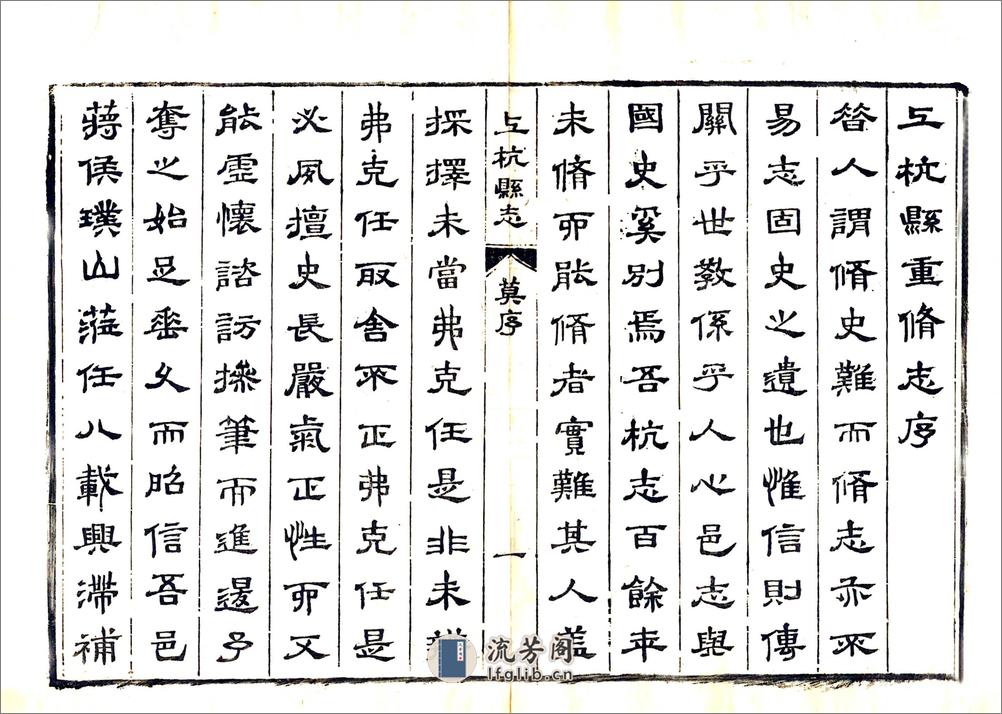 上杭縣重脩志序
昔人謂脩史難而脩志亦不
易志固史之遺也惟信則傳
關乎世教係乎人心邑志與
國史奚別焉吾杭志百餘年
未脩而能脩者實難其人蓋
上杭縣志
莫序
一
採擇未當弗克任是非未
弗克任取舍不正弗克任是
必夙擅史長嚴氣正性而又
能虛懷諮訪操筆而進退予
奪之始足垂久而昭信吾邑
蔣侯璞山蒞任八載興滯補
流芳阁
lfglib.cn